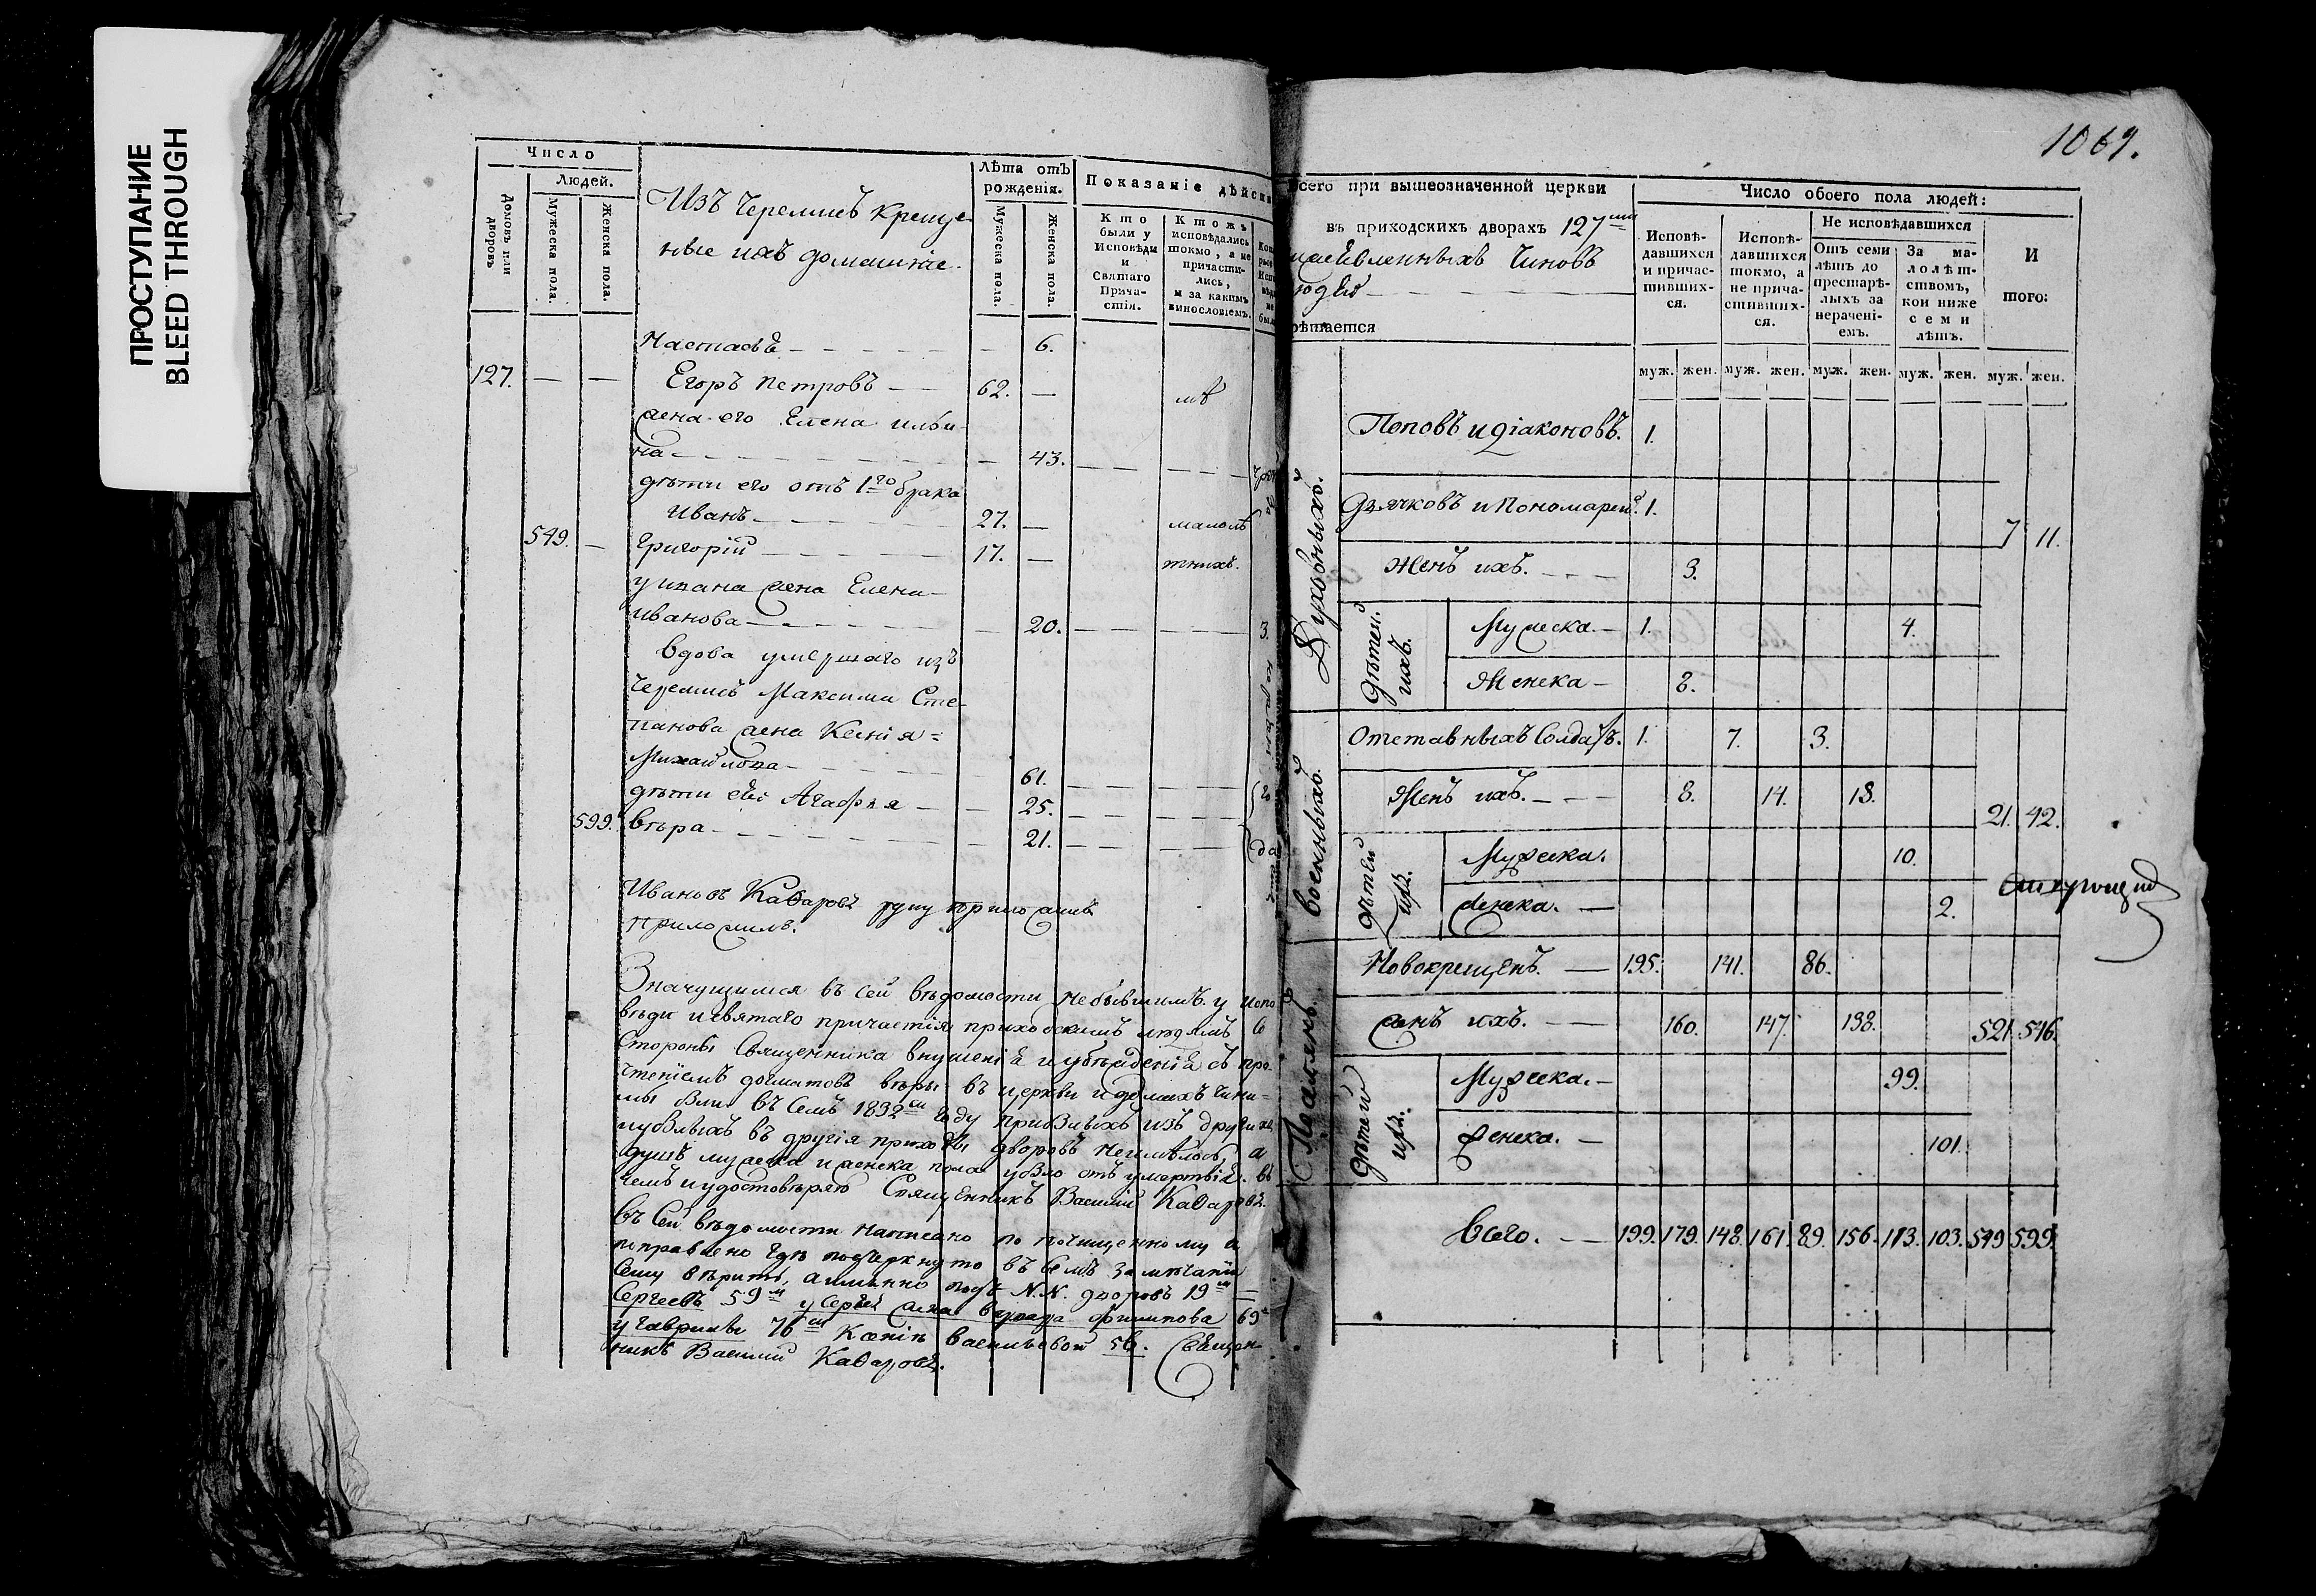 ПРОСТУПАНИЕ
BLEED THROUGH
Число
Людей.
Домовъ или дворовъ
Мужеска пола.
Женска пола.
Изъ Черемисъ крещен-
ные ихъ домашніе.
Лѣта отъ рожденія.
Мужеска пола.
Женска пола.
Показаніе дѣйс
Кто были у Исповѣди и Святаго Прича-стія.
Кто жъ исповѣдались токмо, а не причасти-лись, и за какимъ винословіемъ.
Настасья 6.
127. Егоръ Петровъ 62.
жена его Елена Ильи-
на 43.
дѣти его отъ 1го брака
Иванъ 27. малолѣ
549. Григорій 17. тнихъ.
у Ивана жена Елена
Иванова 20.
вдова умершаго изъ
Черемисъ Максима Сте-
панова жена Ксенія
Михайлова 61.
дѣти ея Агафья 25.
599. Вѣра 21.
Кабаровъ руку приложилъ
приложилъ.
Значущимся въ сей вѣдомости небывшимъ у испо
вѣди и святаго причастія приходскимъ людямъ со
стороны Священника внушенія и убѣжденія съ про-
чтеніемъ догматовъ вѣры въ церкви и домахъ чини-
мы были въ семъ 1832мъ году прибылыхъ изъ другихъ
и убылыхъ въ другія приходы дворовъ неимѣлось, а
душъ мужеска и женска пола убыло отъ умертвія. въ
чемъ и удостовѣряю Священникъ Василий Кабаровъ.
Въ сей вѣдомости написано по почищенному и
поправлено гдѣ подчеркнуто въ семъ замѣчаніи
сему вѣрить, а именно подъ N.N. дворовъ 19м
Сергеевъ 59м у Сергѣя жена Варвара Филипова 69
у Гаврилы 76м Ксенія Васильевой 56. Священ-
никъ Василий Кабаровъ.
1069.
Всего при вышеозначенной церкви
въ приходскихъ дворахъ 127ми
Чиновъ
людей
рѣтается
Число обоего пола людей:
Исповѣ-давшихся и причас-тивших-ся.
Исповѣ-давшихся токмо, а не прича-стивших-ся.
Не исповѣдавшихся
Отъ семи лѣтъ до престарѣ-лыхъ за нерачені-емъ.
За ма-лолѣт-ствомъ, кои ниже семи лѣтъ.
И того:
муж. жен. муж. жен. муж. жен. муж. жен. муж. жен.
Духовныхъ.
Поповъ и діаконовъ. 1.
Дьячковъ и Пономарей. 1.
7 11.
Женъ ихъ. 3.
дѣтей ихъ.
Мужеска 1. 4.
Женска 8.
Военныхъ.
Отставныхъ Солдатъ. 1. 7. 3.
Женъ ихъ. 8. 14. 18.
21. 42.
дѣтей ихъ.
Мужеска. 10.
Женска. 2.
Новокрещенъ. 195. 141. 86.
женъ ихъ. 160. 147. 138.
521. 546.
дѣтей ихъ.
Мужеска. 99.
Женска. 101.
Всего. 199. 179. 148. 161. 89. 156. 113. 103. 549 599.